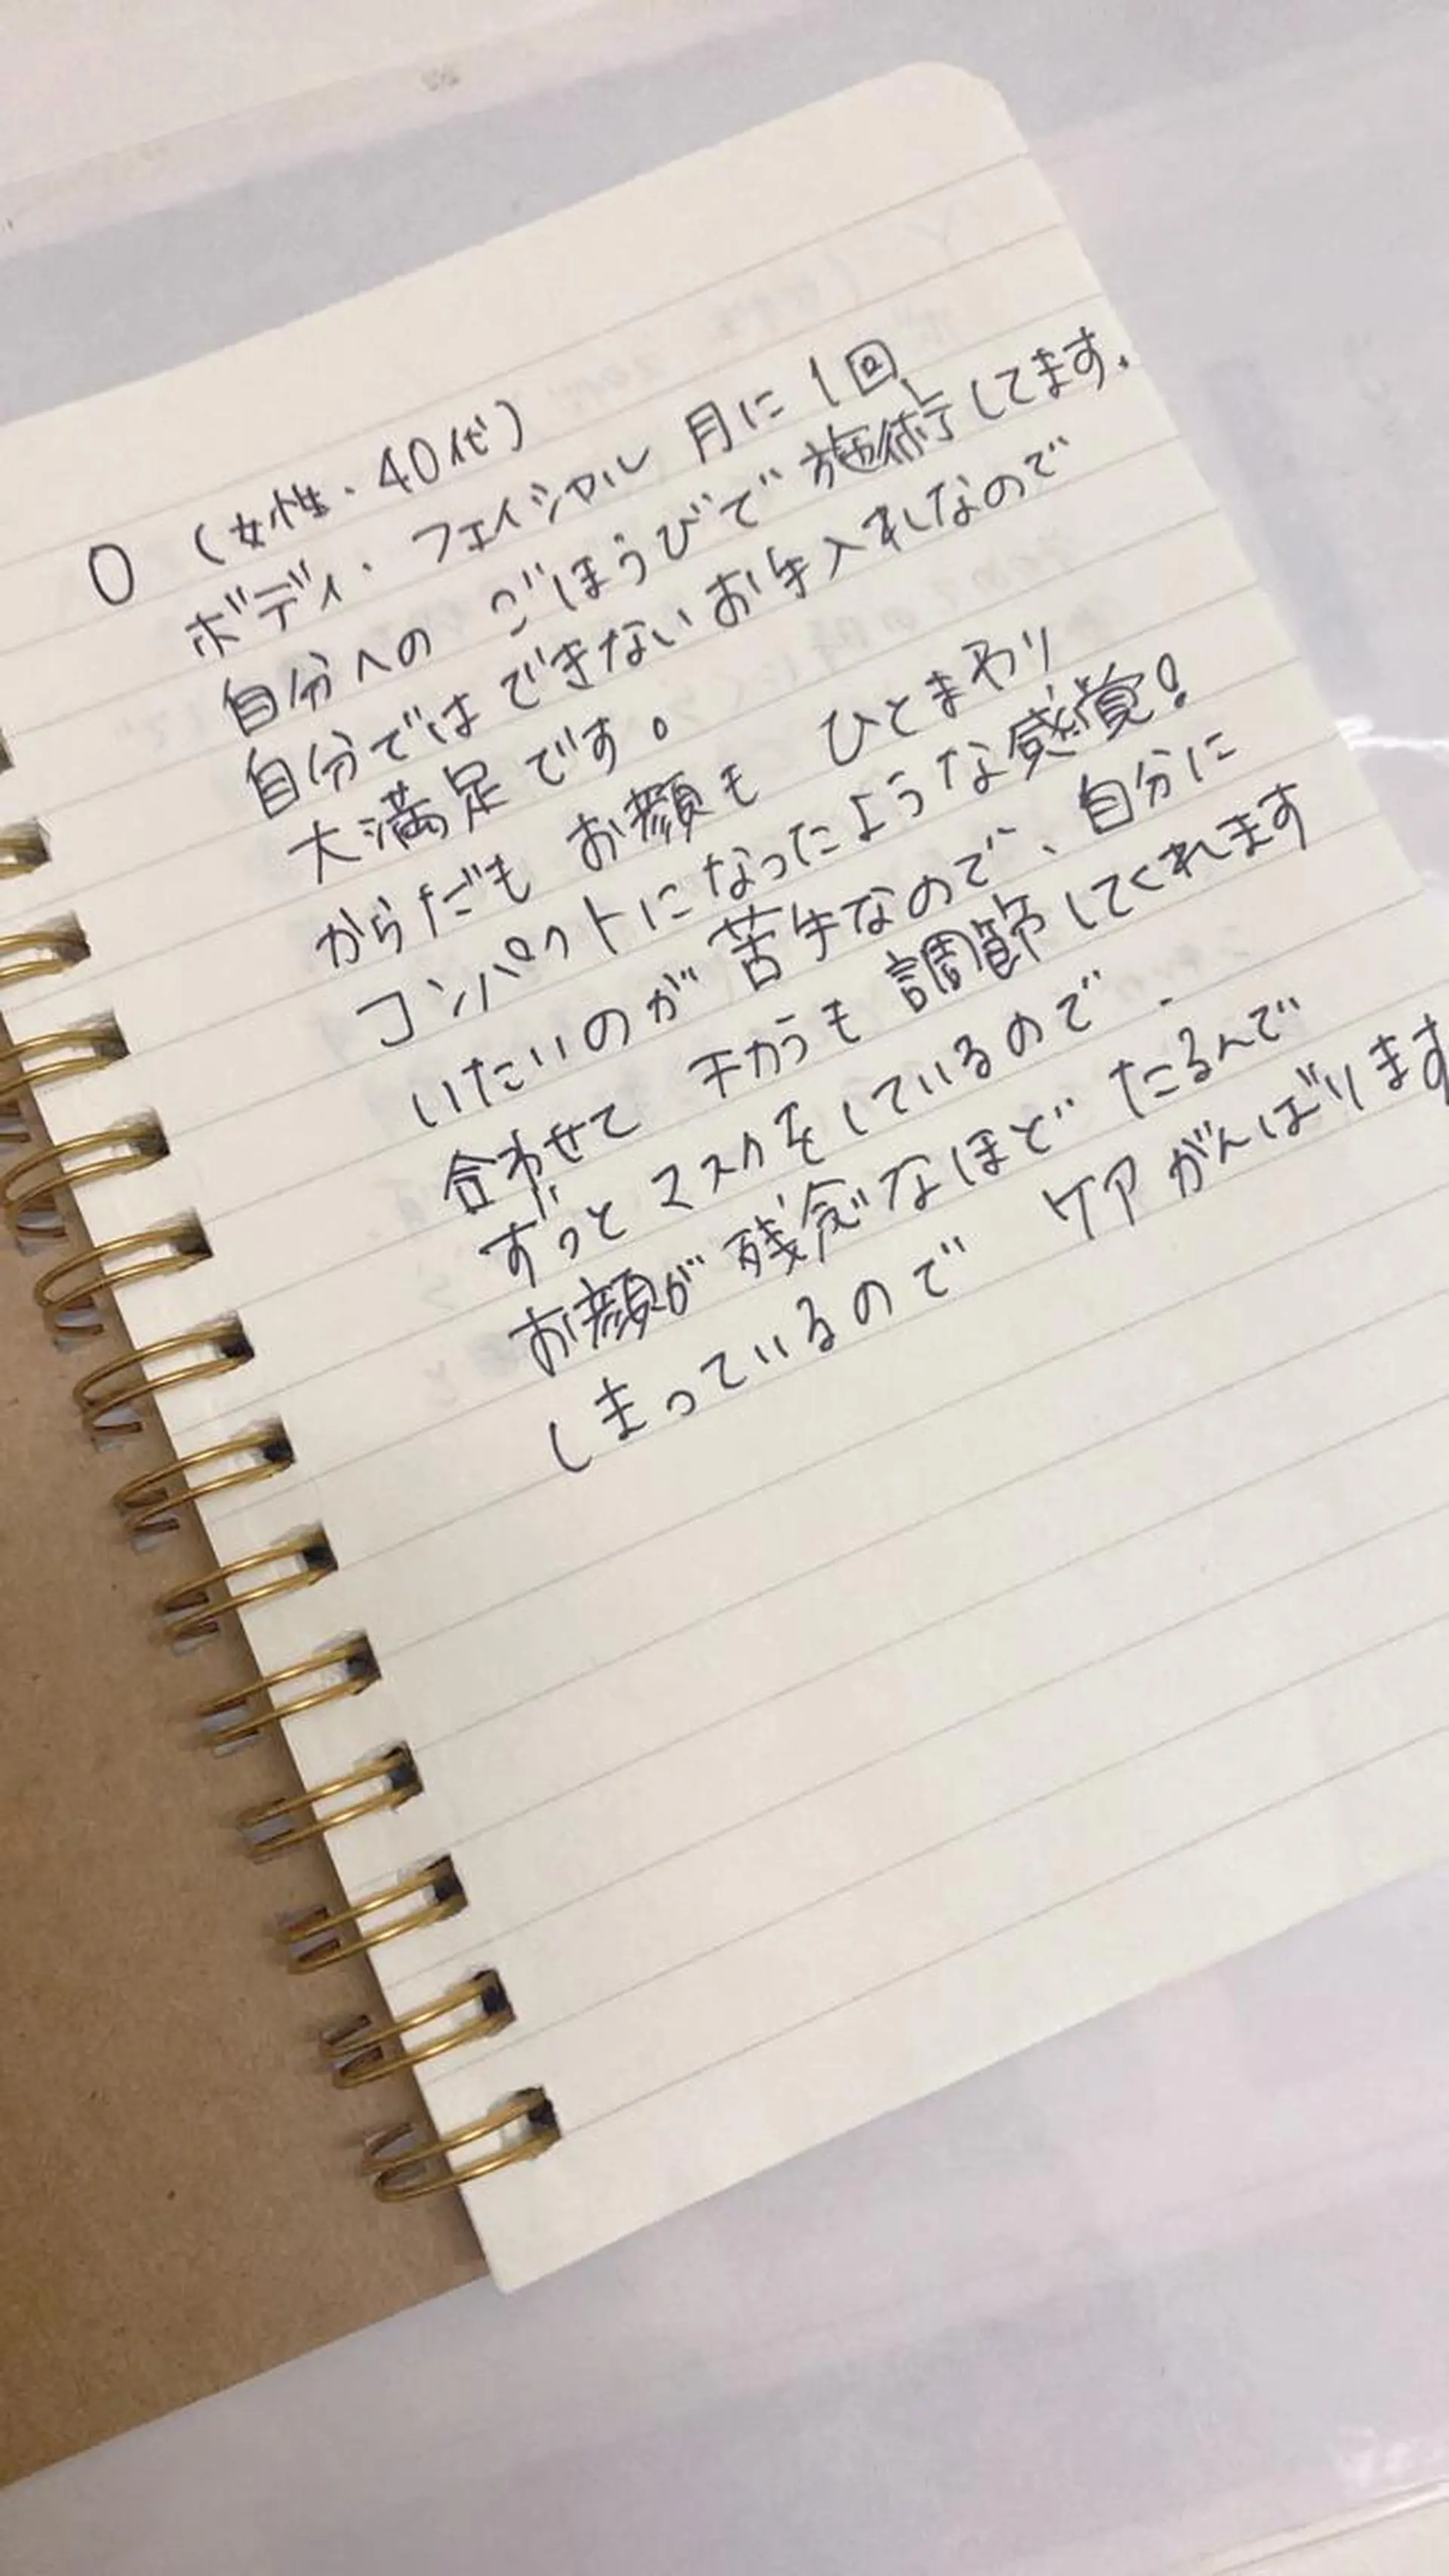 O (女性・40代)
ボディ・フェイシャル 月に1回、
自分への ごほうびで 施術してます.
自分では できない お手入れなので
大満足です。
からだも お顔も ひとまわり
コンパクトになったような感覚!
いたいのが 苦手なので、自分に
合わせて チカラも 調節してくれます
ずっと マスクをしているので、
お顔が 残念なほど たるんで
しまっているので ケア がんばります